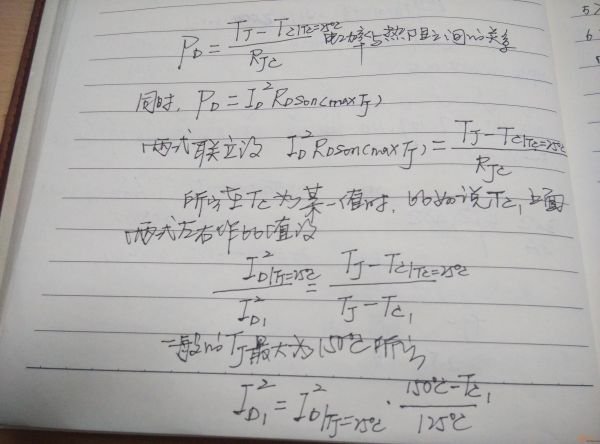 P_D = (T_J - T_C|Tc=25℃) / R_JC 电功率与热阻之间的关系
同时, P_D = I_D² R_DSon(maxTj)
两式联立设 I_D² R_DSon(maxTj) = (T_J - T_C|Tc=25℃) / R_JC
所以在Tc为某一值时, 比如说Tc₁ 上面
两式左右作比值设
I_D²|Tj=25℃ / I_D₁² = (T_J - T_C|Tc=25℃) / (T_J - Tc₁)
一般的T_J最大为150℃所以
I_D₁² = I_D²|Tj=25℃ · (150℃ - Tc₁) / 125℃
5
6